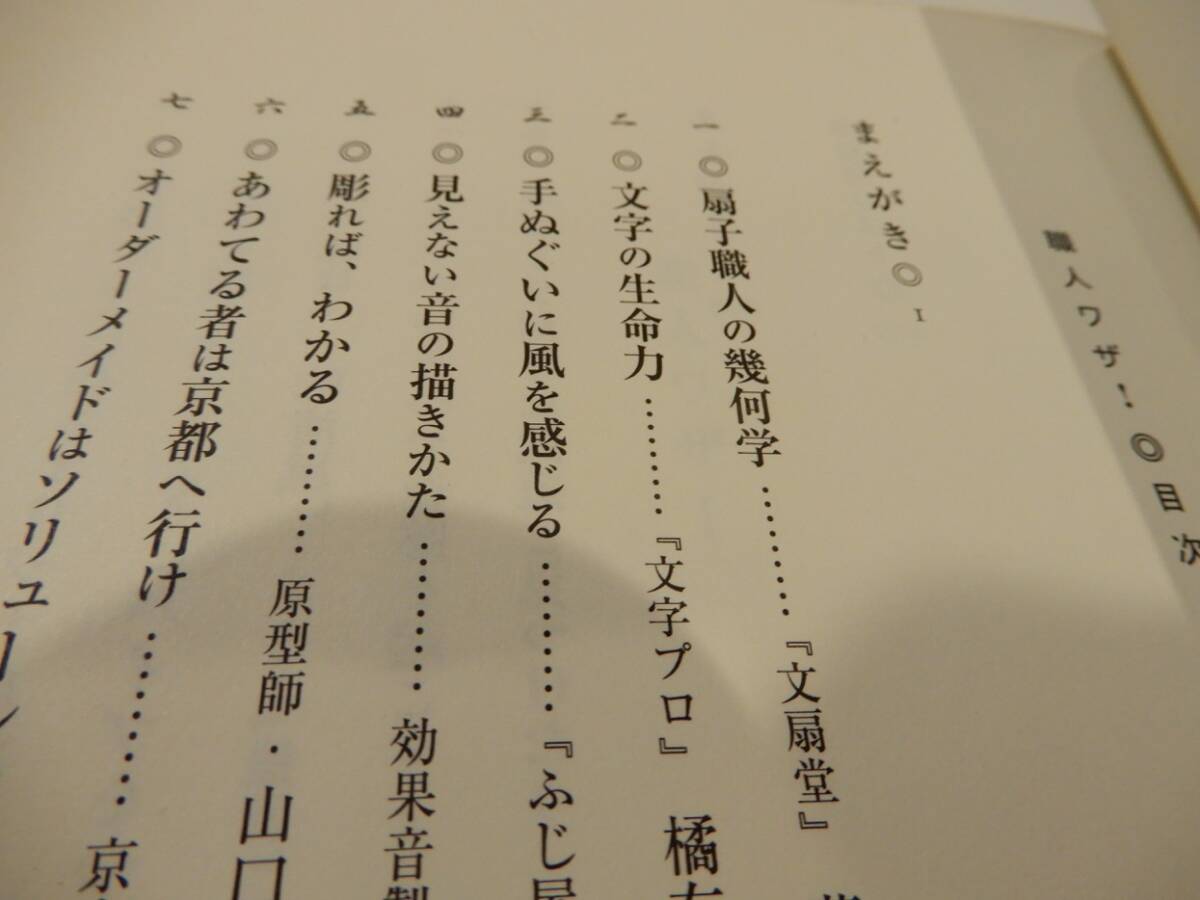 職人ワザ！◎目次
まえがき◎ 1
一◎扇子職人の幾何学………『文扇堂』
二◎文字の生命力………『文字プロ』 橘
三◎手ぬぐいに風を感じる………『ふじ
四◎見えない音の描きかた………効果音
五◎彫れば、わかる………原型師・山
六◎あわてる者は京都へ行け………京
七◎オーダーメイドはソリュー